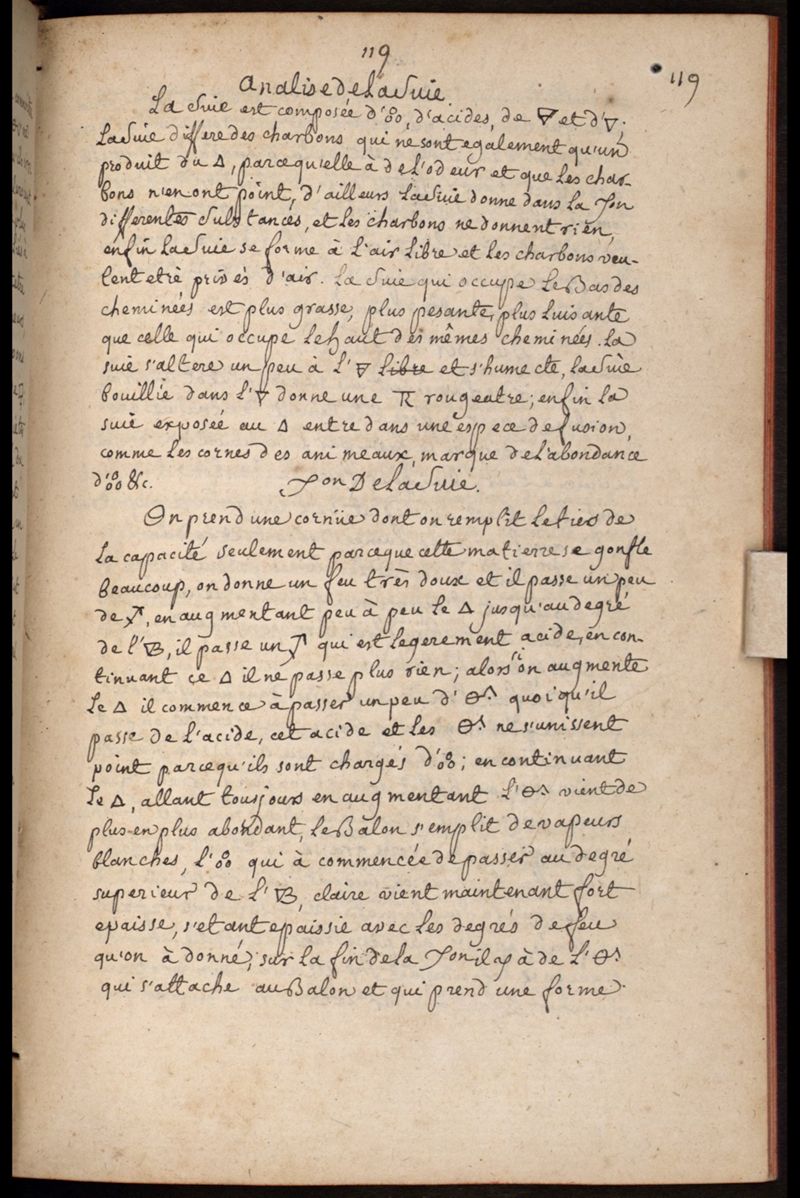 119
119
Analise de la Suie
La Suie est composée d'🝆, d'acides, de 🜄 et d'🜃.
La Suie differe des charbons qui ne sont egalement qu'un
produit du 🜂, parcequ'elle à de l'odeur et que les char-
bons n'en ont point, d'ailleurs la Suie donne dans la ♍on
differentes substances, et les charbons ne donnent rien,
enfin la Suie se forme à l'air libre et les charbons veu-
lent etre privés d'air. La Suie qui occupe le Bas des
cheminées est plus grasse, plus pesante, plus luisante
que celle qui occupe le haut des mêmes cheminées. la
suie s'altere un peu à l'🜄 libre et s'humecte, la Suie
bouillie dans l'🜄 donne une rougeatre; enfin la
suie exposée au 🜂 entre dans une espece de fusion,
comme les cornes des animeaux, marque de l'abondance
d'🝆 &c. ♍on De la Suie.
On prend une cornüe dont on remplit le tiers de
la capacité seulement parceque cette matierre se gonfle
beaucoup, on donne un feu très doux et il passe un peu
de , en augmentant peu à peu le 🜂 jusqu'au degré
de l'🜄B, il passe un qui est legerement acide, en con-
tinuant ce 🜂 il ne passe plus rien; alors si on augmente
le 🜂 il commence à passer un peu d' quoiqu'il
passe de l'acide, cet acide et les ne s'unissent
point parcequ'ils sont chargés d'🝆; en continuant
le 🜂, allant tousjours en augmentant l' vient de
plus en plus abondant, le Balon s'emplit de vapeurs
blanches, l'🝆 qui à commencée de passer au degré
superieur de l'🜄B, claire vient maintenant fort
epaisse, s'etant epaissie avec les degrés de feu
qu'on à donné; sur la fin de la ♍on il y à de l'
qui s'attache au Balon et qui prend une forme